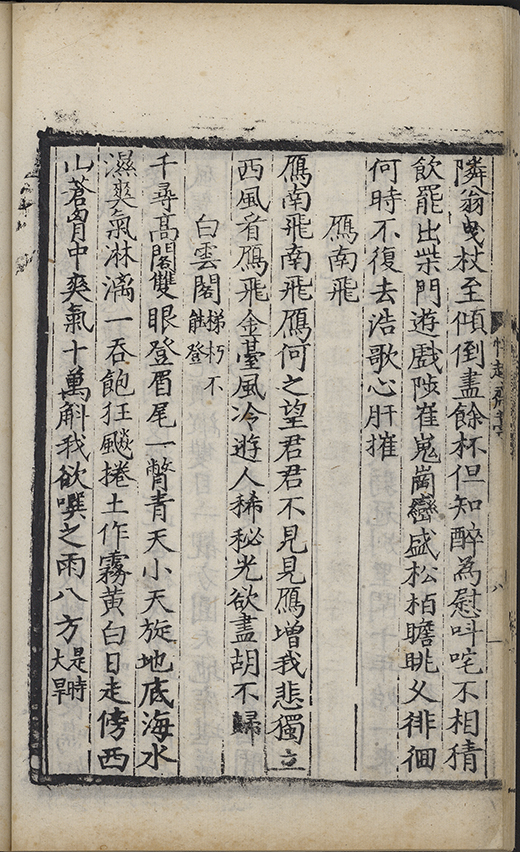 隣翁曳杖至傾倒盡餘杯但知醉為慰呌咤不相猜
飲罷出柴門遊戲陟崔嵬崗巒盛松栢瞻眺久徘徊
何時不復去浩歌心肝摧
鴈南飛
鴈南飛南飛鴈何之望君君不見見鴈增我悲獨立
西風看鴈飛金臺風冷遊人稀秘光欲盡胡不歸
白雲閣梯朽不能登
千尋高閣雙眼登眉尾一瞥青天小天旋地底海水
濕爽氣淋漓一吞飽狂飈捲土作霧黃白日走傍西
山蒼胷中爽氣十萬斛我欲噀之雨八方是時大旱